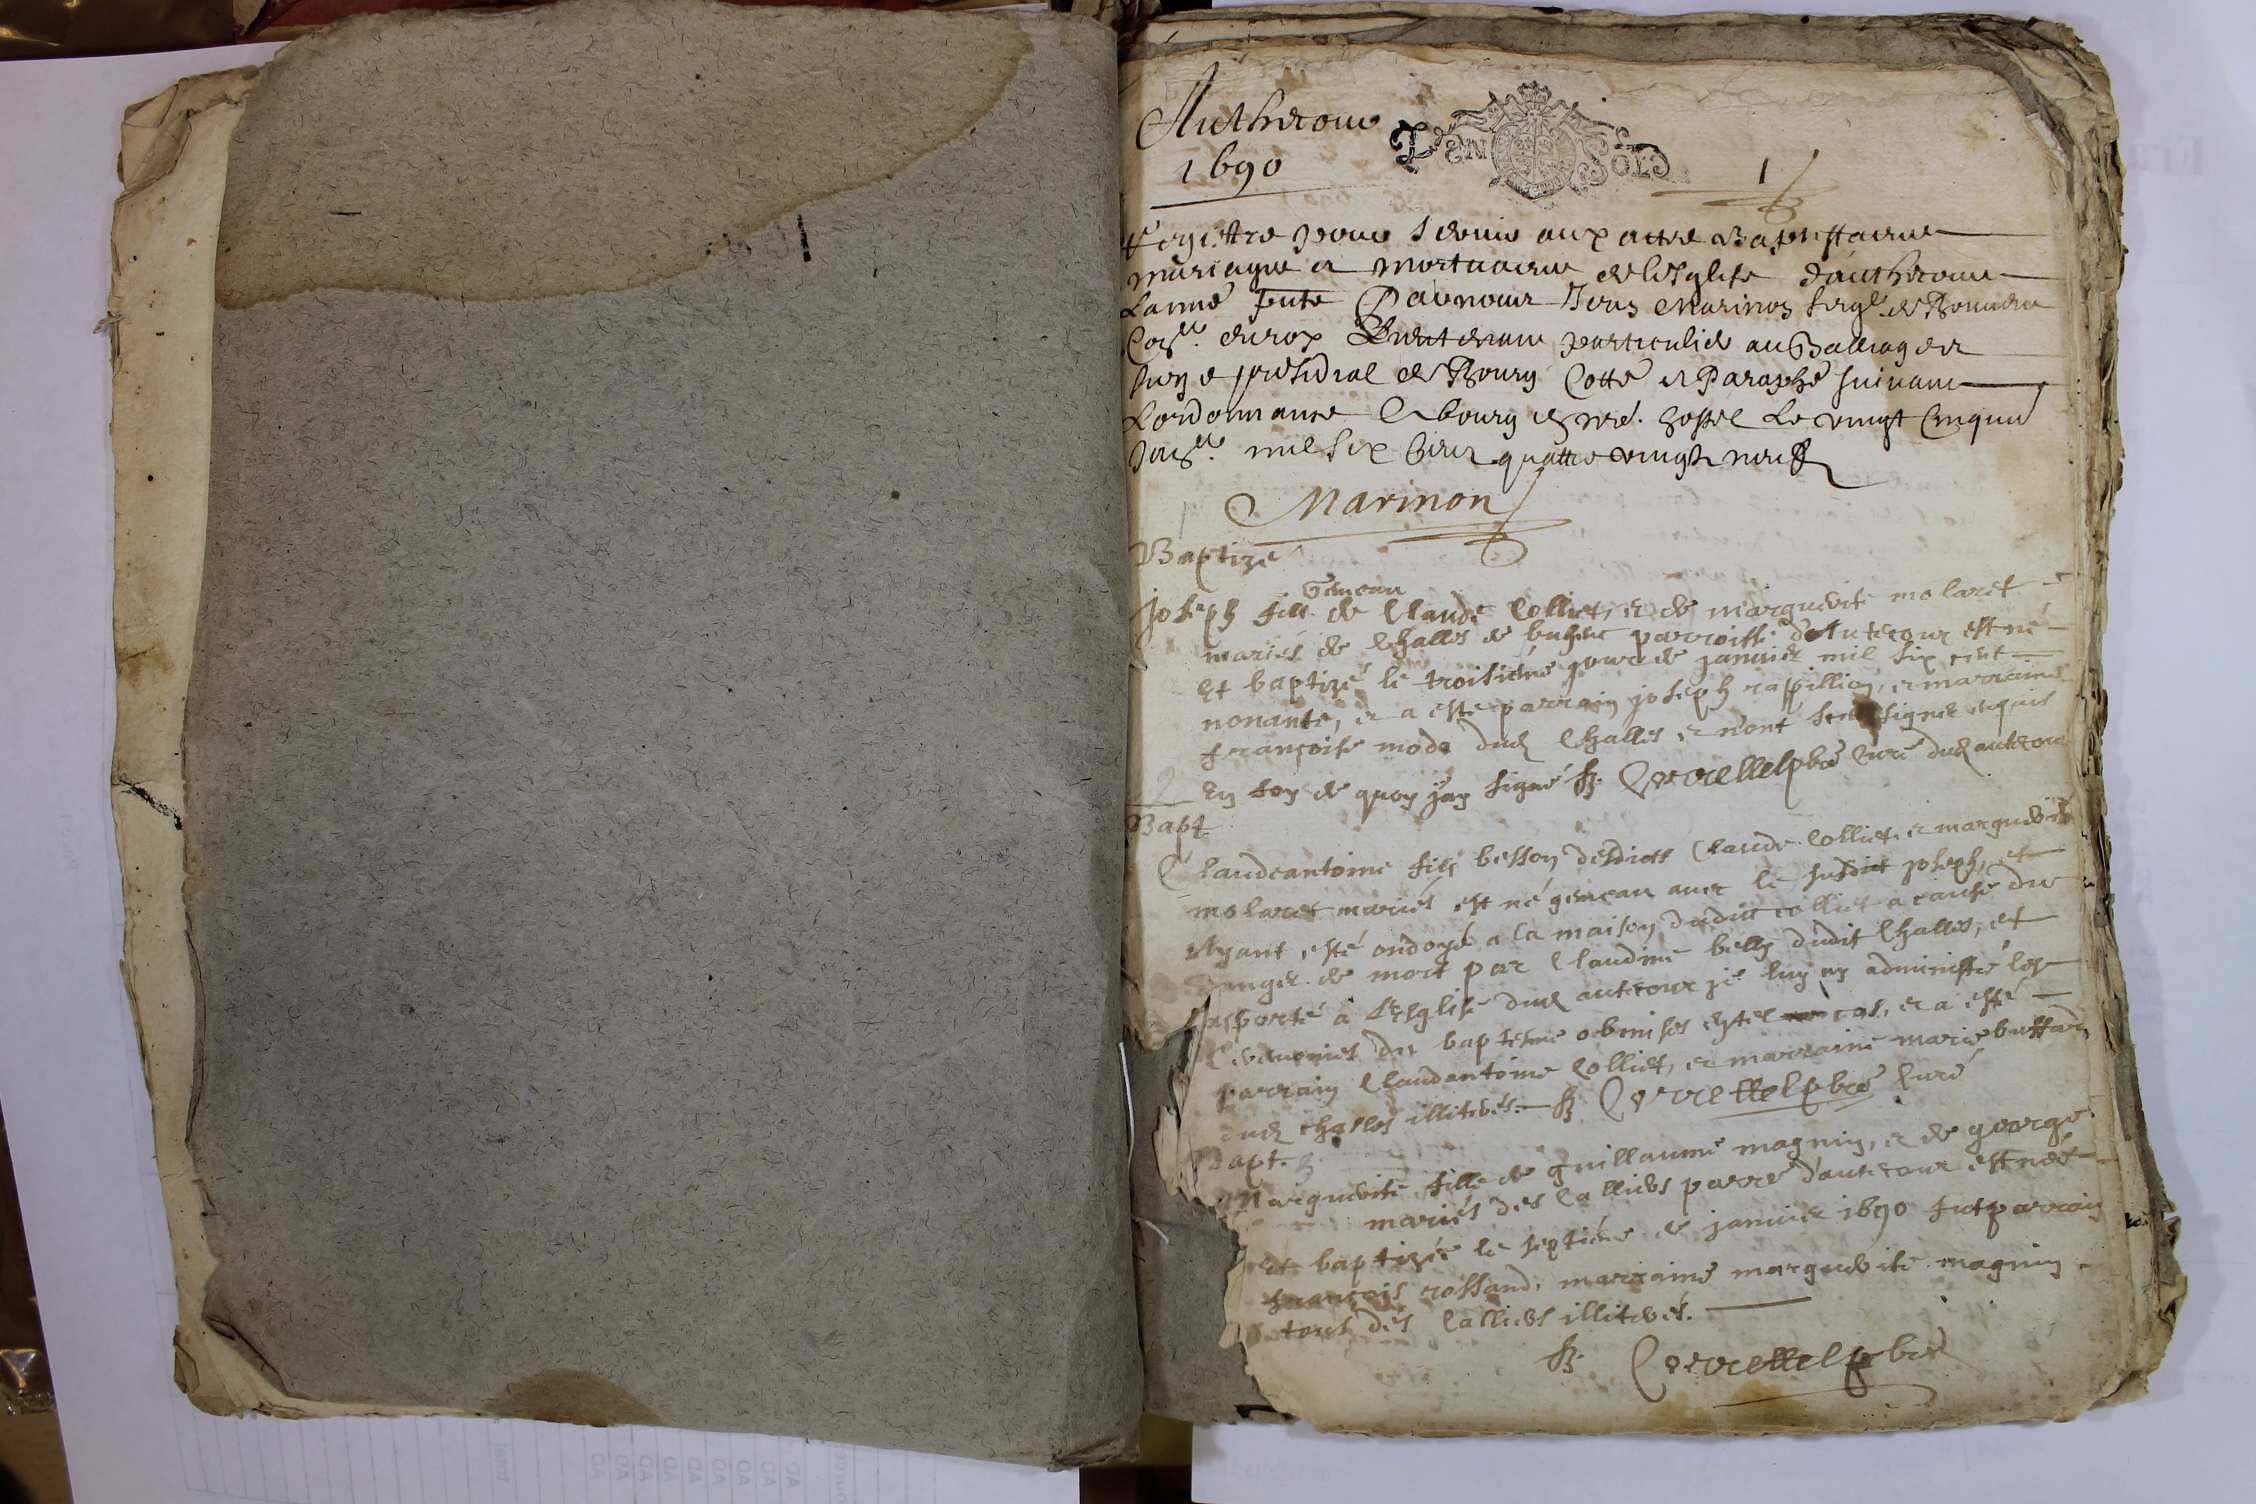 Authecour
1690
DEUX SOLS
1
Registre pour servir aux actes Baptistaires
mariages et mortuaires de lesglise d'authecour
Lannée
Consr. du roy Lieutenant particulier au Balliage et
siege presidial de Bourg Cotté et Paraphé suivant
Lordonnance A bourg en hostel Le vingt cinquie
mil six cent quattre vingt neuf
Marinon
Baptize
gemeau
joseph fils de Claude Colliet, et de marguerite molaret
mariés de Challes de parroisse d'Autecour est né
Et baptizé le troisieme jour de janvier mil six cent
nonante, et a esté parrain joseph raspillion, et marraine
françoise dud Challes et n'ont sceu signer enquis
En foy de quoy jay signé Curé dud autecour
2
Bapt
Claudeantoine fils besson desdicts Claude Colliet et marguerite
molaret mariés est né gemeau avec le susdict joseph, et
Ayant esté ondoyé a la maison dudict colliet a cause du
danger de mort par Claudine belly dudit Challes, et
apporté à L'Esglise dud autecour je luy ay administré les
Ceremonies du baptesme obmises en tel cas, et a esté
parrain Claudantoine Colliet, et marraine marie buffard
dud challes illiterés. Curé
Bapt. 3
Marguerite fille de guillaume magnin, et de george
mariés des Calliers parre d'autecour est née
et baptizée le septieme de janvier 1690 fut parrain
françois rossand, marraine marguerite magnin
tous des Calliers illiterés.